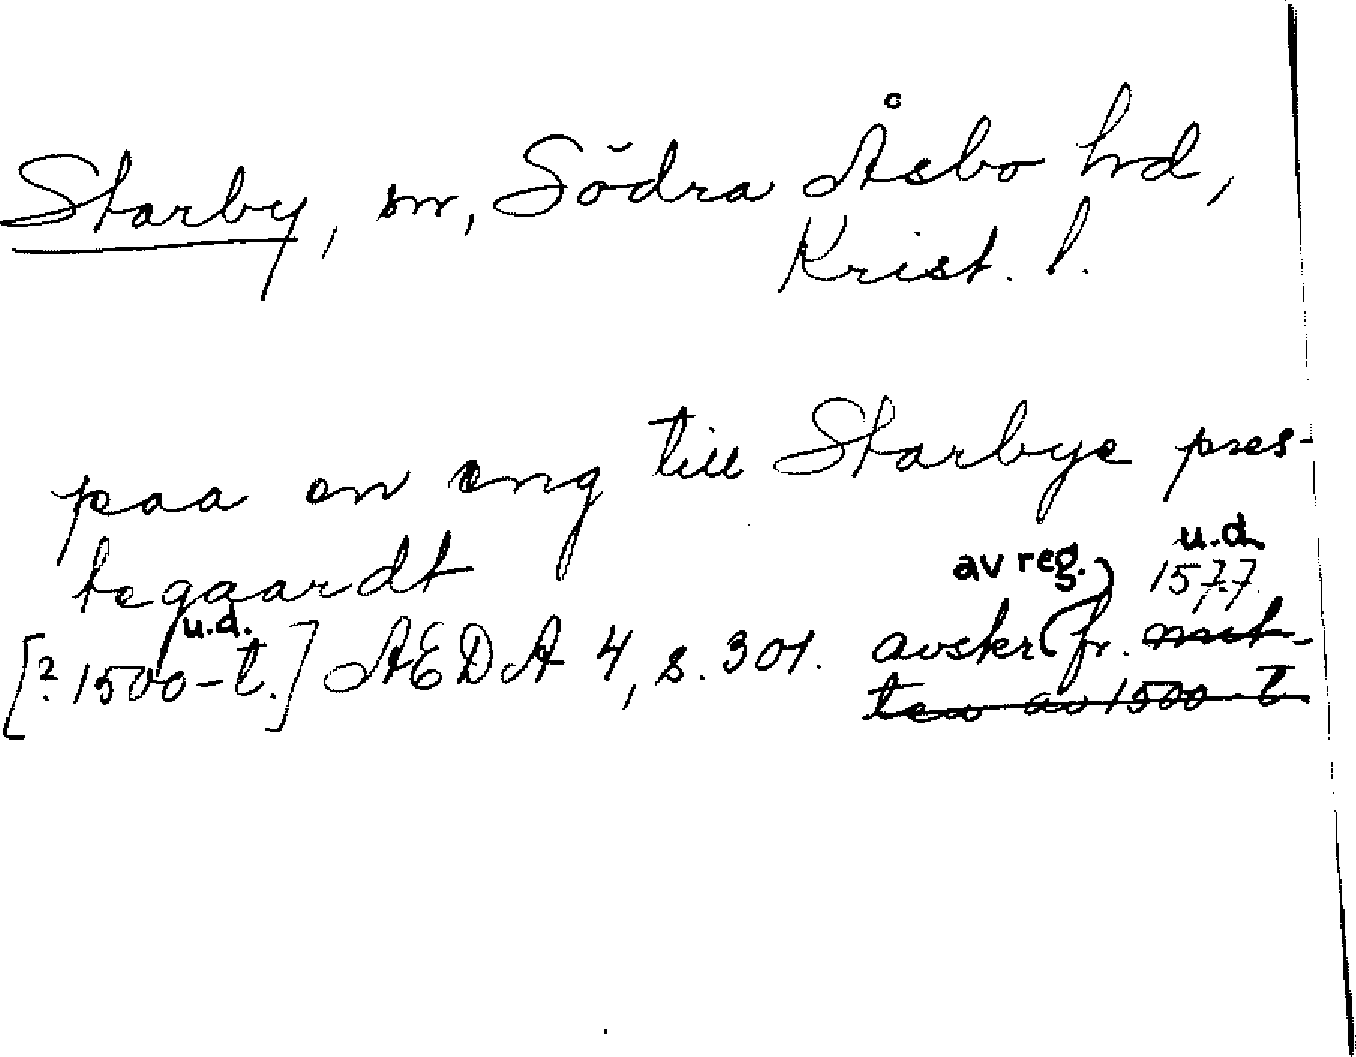 Starby, sn, Södra Åsbo hd,
Krist. l.
paa en eng till Starbye pres-
tegaardt
av reg. u.d. 1577
[? 1500-t. u.d.] AEDA 4, s. 301. avskr. fr. mit-
ten av 1500-t.